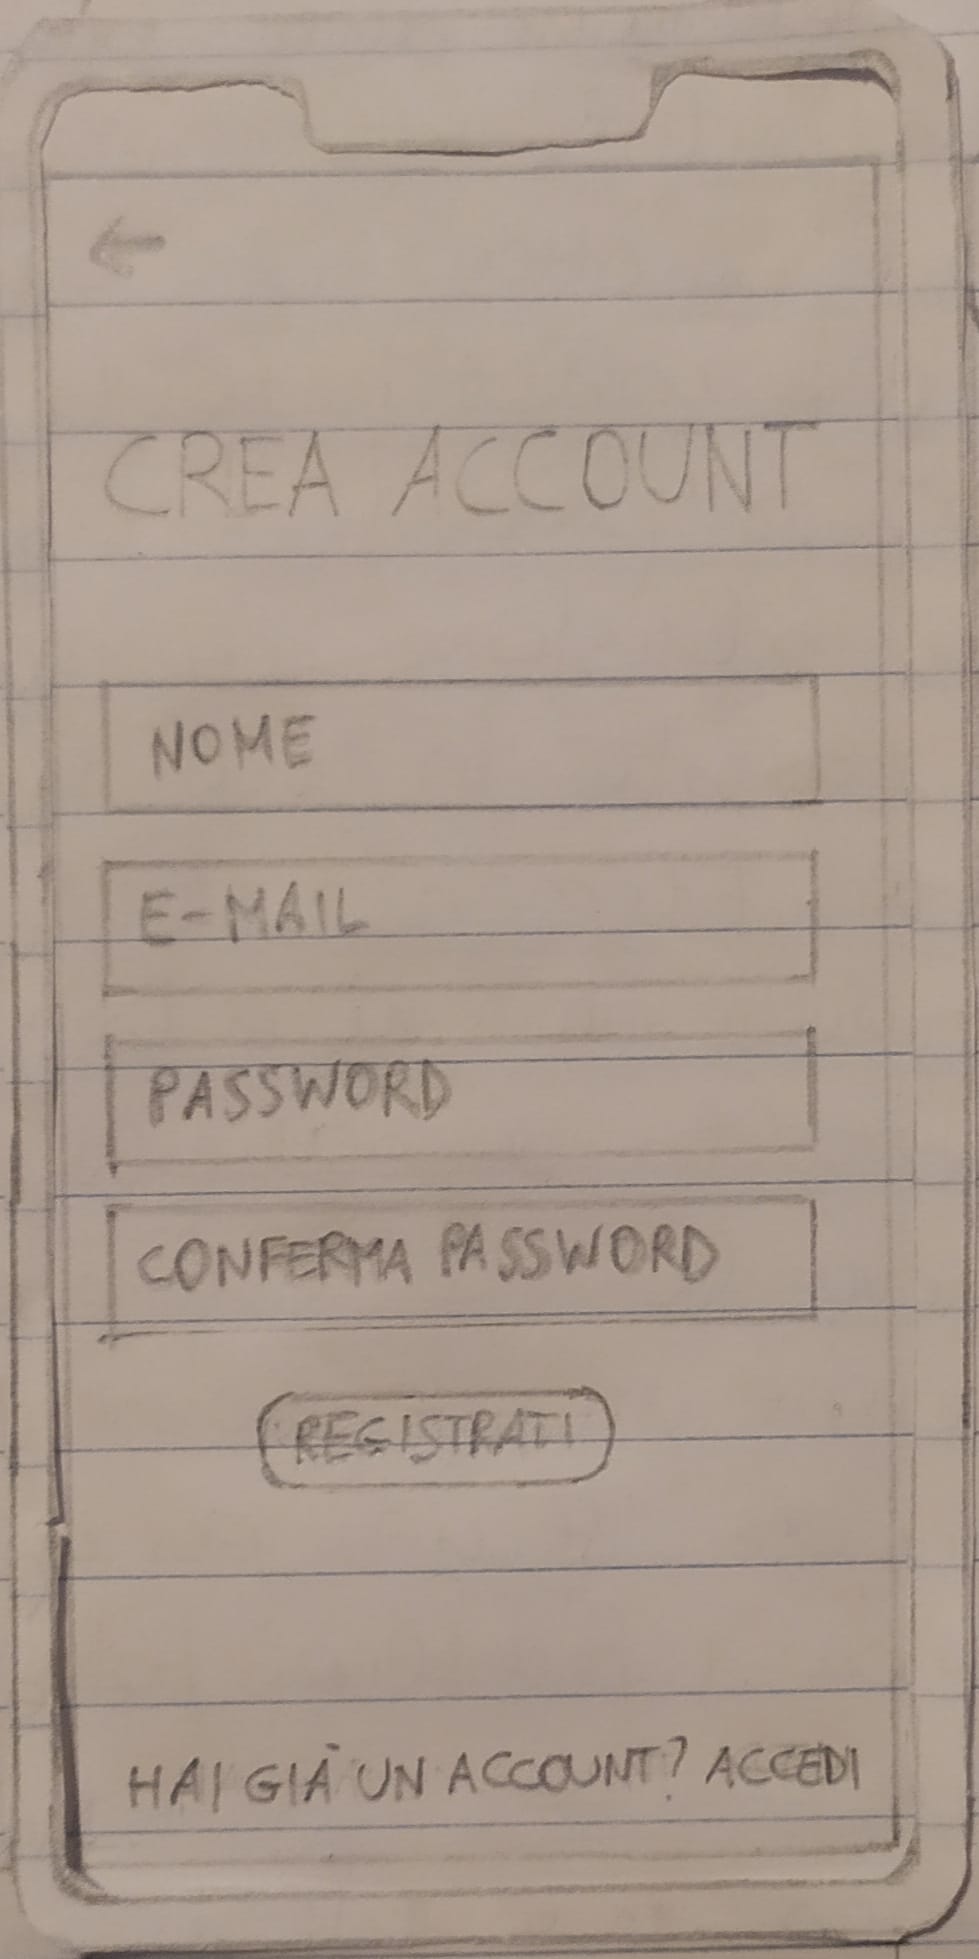 CREA ACCOUNT
NOME
E-MAIL
PASSWORD
CONFERMA PASSWORD
REGISTRATI
HAI GIÀ UN ACCOUNT? ACCEDI